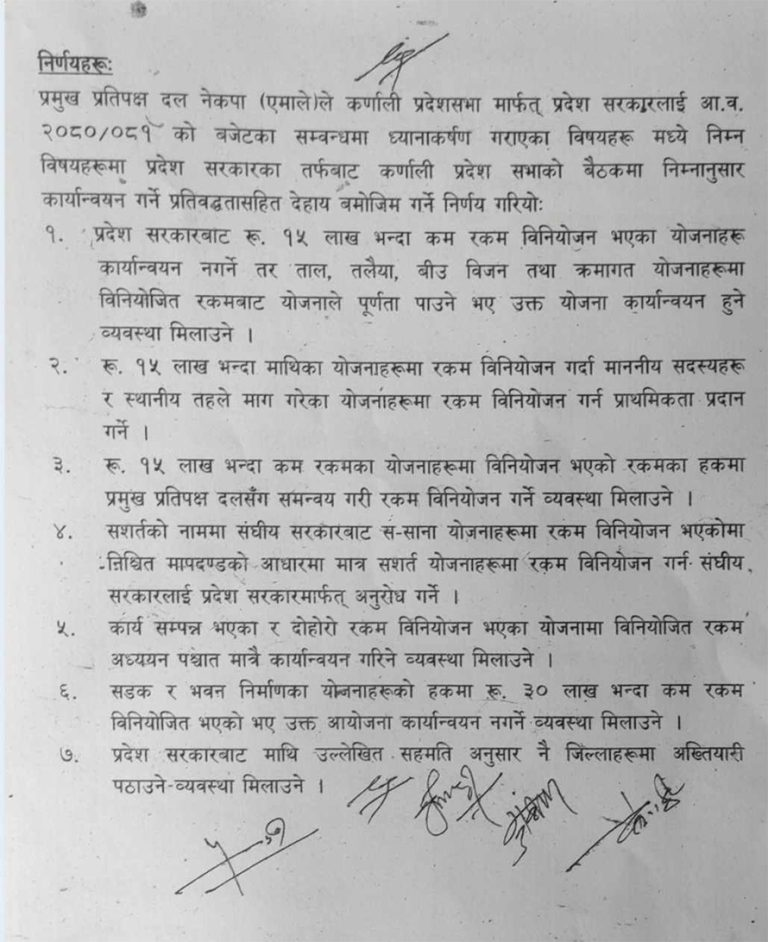 निर्णयहरू:
प्रमुख प्रतिपक्ष दल नेकपा (एमाले)ले कर्णाली प्रदेशसभा मार्फत् प्रदेश सरकारलाई आ.व.
२०८०/०८१ को बजेटका सम्वन्धमा ध्यानाकर्षण गराएका विषयहरू मध्ये निम्न
विषयहरूमा प्रदेश सरकारका तर्फबाट कर्णाली प्रदेश सभाको बैठकमा निम्नानुसार
कार्यान्वयन गर्ने प्रतिवद्धतासहित देहाय बमोजिम गर्ने निर्णय गरियो:
१. प्रदेश सरकारबाट रू. १५ लाख भन्दा कम रकम विनियोजन भएका योजनाहरू
कार्यान्वयन नगर्ने तर ताल, तलैया, बीउ विजन तथा क्रमागत योजनाहरूमा
विनियोजित रकमबाट योजनाले पूर्णता पाउने भए उक्त योजना कार्यान्वयन हुने
व्यवस्था मिलाउने ।
२. रू. १५ लाख भन्दा माथिका योजनाहरूमा रकम विनियोजन गर्दा माननीय सदस्यहरू
र स्थानीय तहले माग गरेका योजनाहरूमा रकम विनियोजन गर्न प्राथमिकता प्रदान
गर्ने ।
३. रू. १५ लाख भन्दा कम रकमका योजनाहरूमा विनियोजन भएको रकमका हकमा
प्रमुख प्रतिपक्ष दलसँग समन्वय गरी रकम विनियोजन गर्ने व्यवस्था मिलाउने ।
४. सशर्तको नाममा संघीय सरकारबाट स-साना योजनाहरूमा रकम विनियोजन भएकोमा
निश्चित मापदण्डको आधारमा मात्र सशर्त योजनाहरूमा रकम विनियोजन गर्न संघीय
सरकारलाई प्रदेश सरकारमार्फत् अनुरोध गर्ने ।
५. कार्य सम्पन्न भएका र दोहोरो रकम विनियोजन भएका योजनामा विनियोजित रकम
अध्ययन पश्चात मात्रै कार्यान्वयन गरिने व्यवस्था मिलाउने ।
६. सडक र भवन निर्माणका योजनाहरूको हकमा रू. ३० लाख भन्दा कम रकम
विनियोजित भएको भए उक्त आयोजना कार्यान्वयन नगर्ने व्यवस्था मिलाउने ।
७. प्रदेश सरकारबाट माथि उल्लेखित सहमति अनुसार नै जिल्लाहरूमा अख्तियारी
पठाउने-व्यवस्था मिलाउने ।